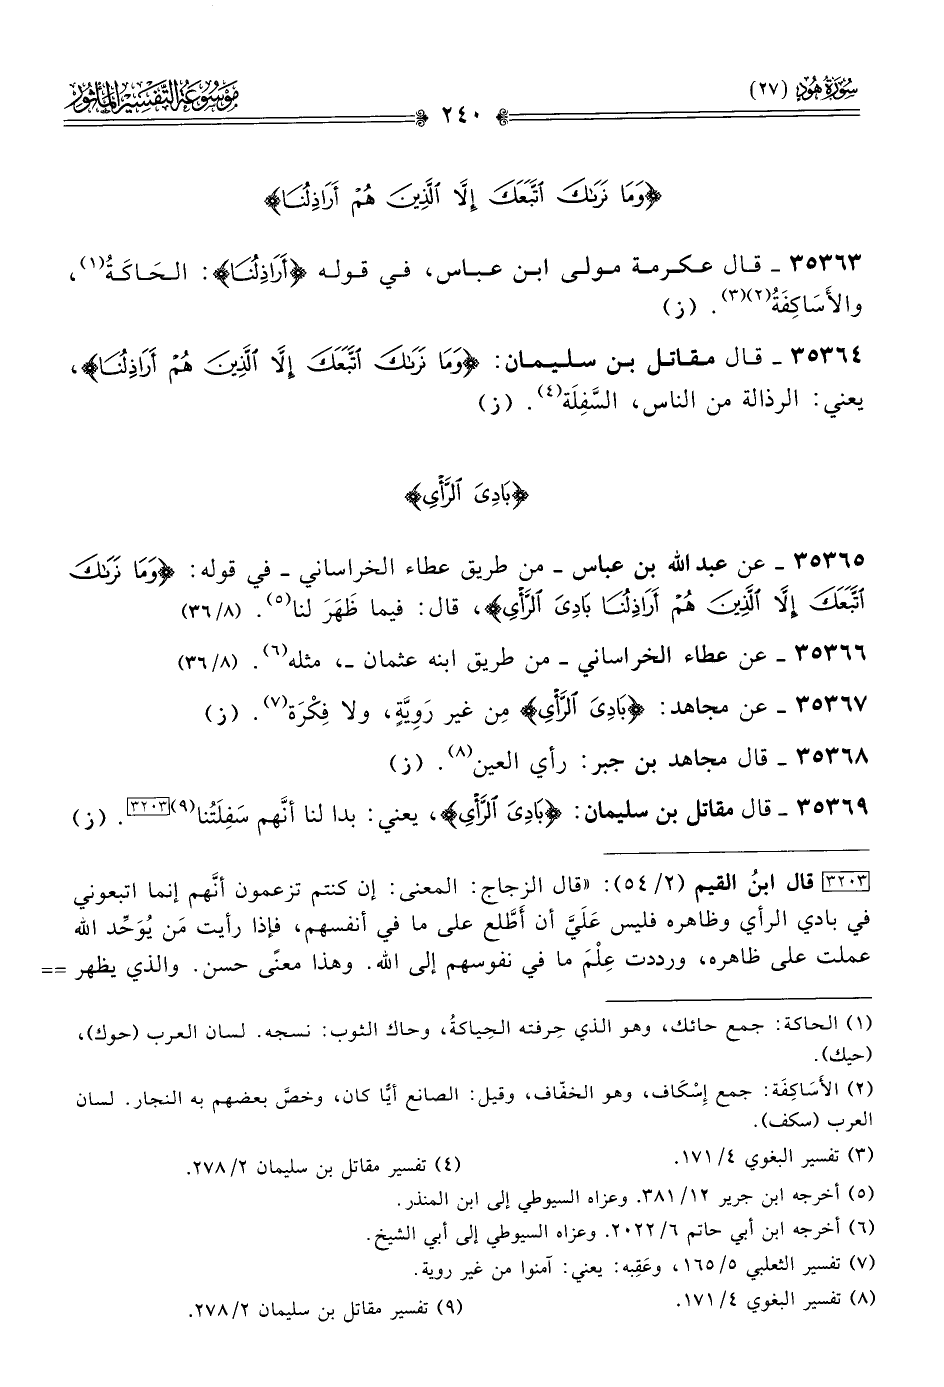 سُورَةُ هُودٍ (٢٧)
مَوْسُوعَةُ التَّفْسِيرِ المَأْثُورِ
٢٤٠
﴿وَمَا نَرَىٰكَ ٱتَّبَعَكَ إِلَّا ٱلَّذِينَ هُمْ أَرَاذِلُنَا﴾
٣٥٣٦٣ ـ قال عكرمة مولى ابن عباس، في قوله ﴿أَرَاذِلُنَا﴾: الحَاكَةُ(١)،
والأَسَاكِفَةُ(٢)(٣). (ز)
٣٥٣٦٤ ـ قال مقاتل بن سليمان: ﴿وَمَا نَرَىٰكَ ٱتَّبَعَكَ إِلَّا ٱلَّذِينَ هُمْ أَرَاذِلُنَا﴾،
يعني: الرذالة من الناس، السَّفِلَة(٤). (ز)
﴿بَادِىَ ٱلرَّأْىِ﴾
٣٥٣٦٥ ـ عن عبد الله بن عباس ـ من طريق عطاء الخراساني ـ في قوله: ﴿وَمَا نَرَىٰكَ
ٱتَّبَعَكَ إِلَّا ٱلَّذِينَ هُمْ أَرَاذِلُنَا بَادِىَ ٱلرَّأْىِ﴾، قال: فيما ظَهَرَ لنا(٥). (٣٦/٨)
٣٥٣٦٦ ـ عن عطاء الخراساني ـ من طريق ابنه عثمان ـ، مثله(٦). (٣٦/٨)
٣٥٣٦٧ ـ عن مجاهد: ﴿بَادِىَ ٱلرَّأْىِ﴾ مِن غير رَوِيَّةٍ، ولا فِكْرَة(٧). (ز)
٣٥٣٦٨ ـ قال مجاهد بن جبر: رأي العين(٨). (ز)
٣٥٣٦٩ ـ قال مقاتل بن سليمان: ﴿بَادِىَ ٱلرَّأْىِ﴾، يعني: بدا لنا أنَّهم سَفِلَتُنا(٩)[٣٢٠٣]. (ز)
[٣٢٠٣] قال ابنُ القيم (٥٤/٢): «قال الزجاج: المعنى: إن كنتم تزعمون أنَّهم إنما اتبعوني
في بادي الرأي وظاهره فليس عَلَيَّ أن أَطَّلع على ما في أنفسهم، فإذا رأيت مَن يُوَحِّد الله
عملت على ظاهره، ورددت عِلْمَ ما في نفوسهم إلى الله. وهذا معنًى حسن. والذي يظهر ==
(١) الحاكة: جمع حائك، وهو الذي حِرفته الحِياكةُ، وحاك الثوب: نسجه. لسان العرب (حوك)،
(حيك).
(٢) الأَسَاكِفَة: جمع إِسْكَاف، وهو الخفّاف، وقيل: الصانع أيًّا كان، وخصَّ بعضهم به النجار. لسان
العرب (سكف).
(٣) تفسير البغوي ١٧١/٤.
(٤) تفسير مقاتل بن سليمان ٢٧٨/٢.
(٥) أخرجه ابن جرير ٣٨١/١٢. وعزاه السيوطي إلى ابن المنذر.
(٦) أخرجه ابن أبي حاتم ٢٠٢٢/٦. وعزاه السيوطي إلى أبي الشيخ.
(٧) تفسير الثعلبي ١٦٥/٥، وعَقِبه: يعني: آمنوا من غير روية.
(٨) تفسير البغوي ١٧١/٤.
(٩) تفسير مقاتل بن سليمان ٢٧٨/٢.